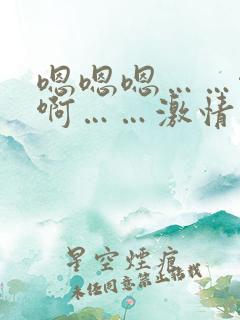 嗯嗯嗯……
啊……激情
星空煙痕
未经同意禁止转载